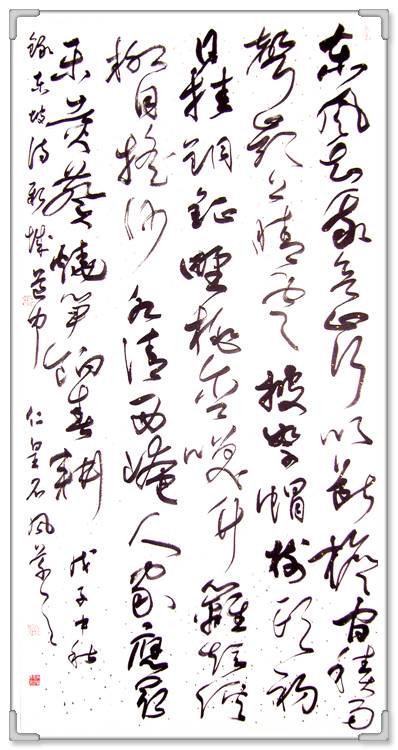 东风知我欲山行吹断檐间积雨
声岭上晴云披絮帽树头初
日挂铜钲野桃含笑竹篱短溪
柳自摇沙水清西崦人家应最
乐煮葵烧笋饷春耕 戊子中秋
录东坡诗新城道中 仁 石风